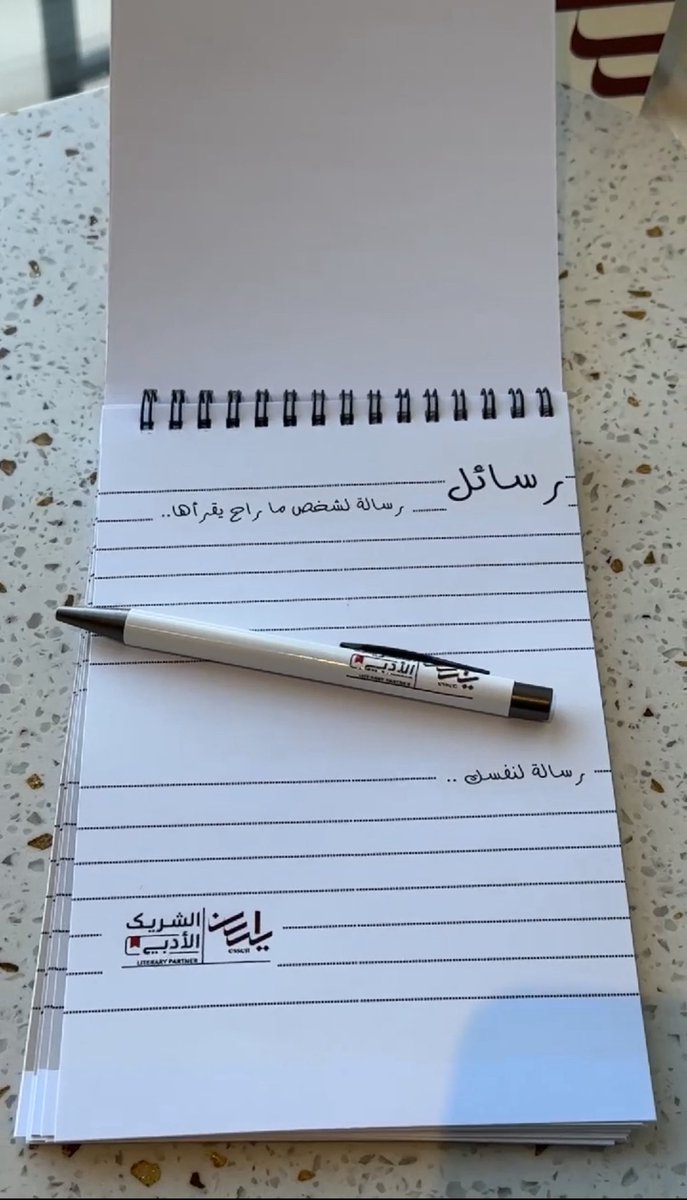 رسائل
رسالة لشخص ما راح يقرأها..
الأدبي
LITERARY PARTNER
رسالة لنفسك ..
الشريك
الأدبي
LITERARY PARTNER